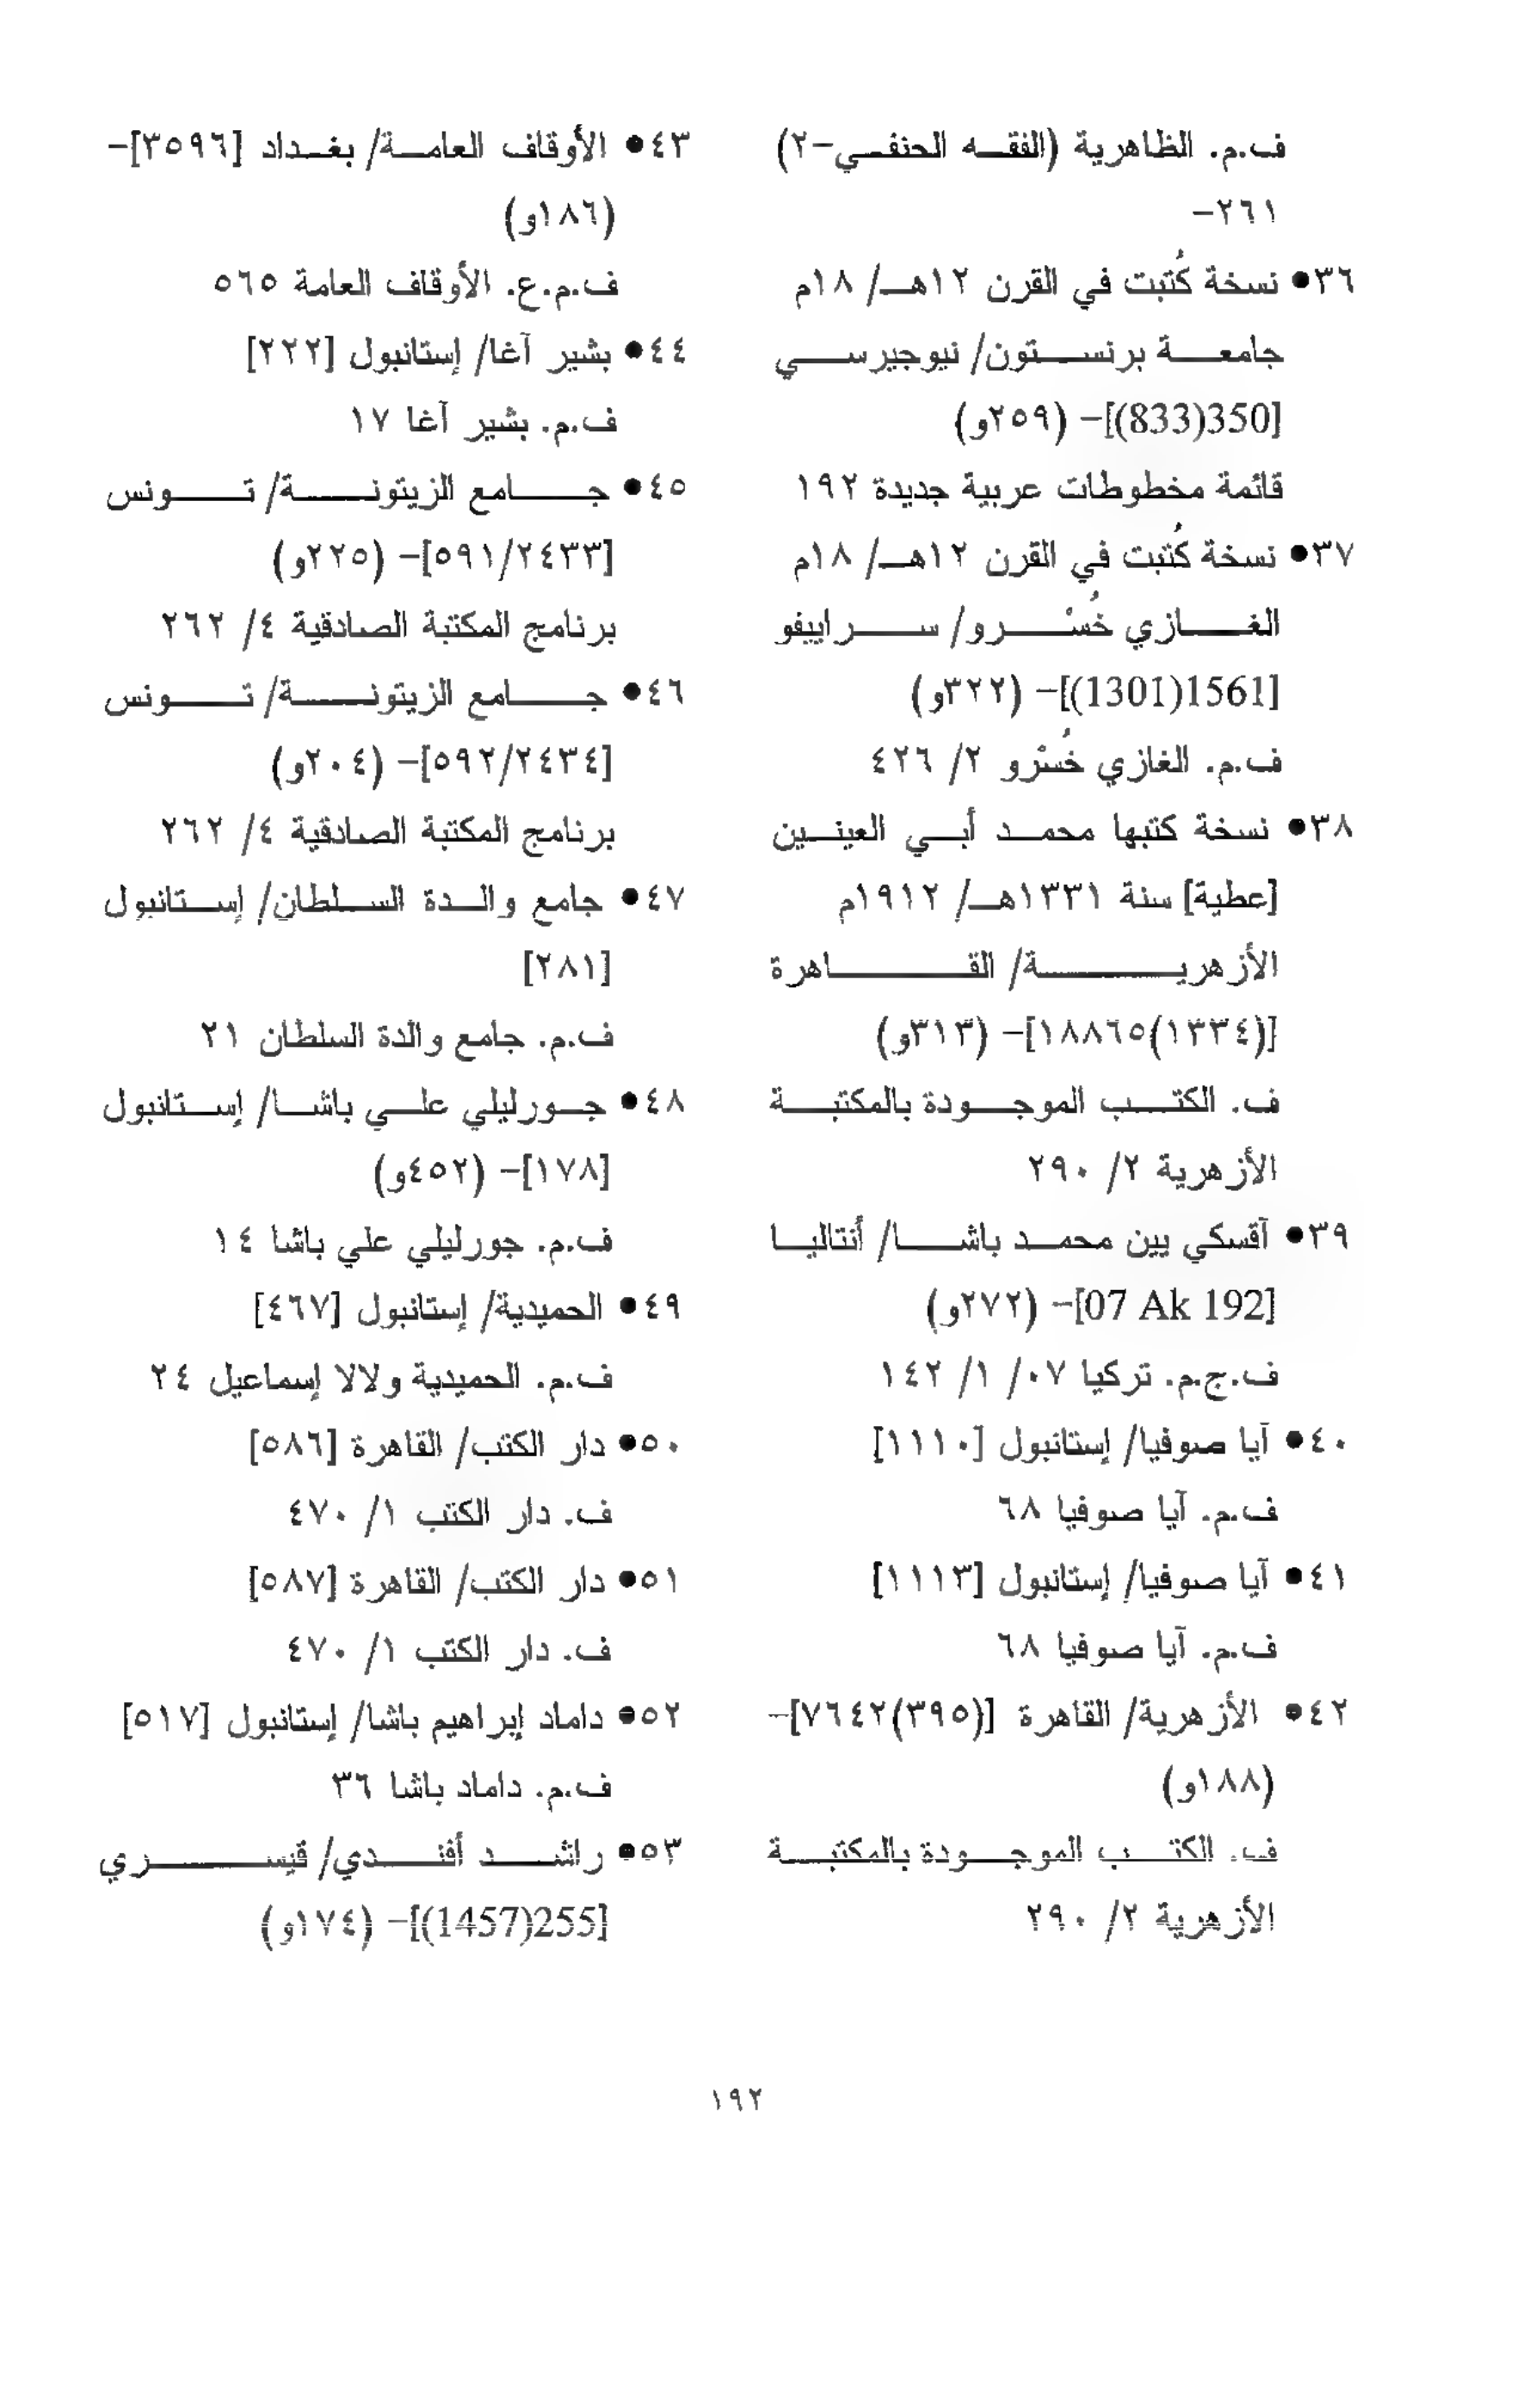 ف.م. الظاهرية (الفقه الحنفي-٢)
٢٦١-
٣٦• نسخة كُتبت في القرن ١٢هـ/ ١٨م
جامعة برنستون/ نيوجيرسي
[350(833)]- (٢٥٩و)
قائمة مخطوطات عربية جديدة ١٩٢
٣٧• نسخة كُتبت في القرن ١٢هـ/ ١٨م
الغازي خُسْرو/ سراييفو
[1561(1301)]- (٣٢٢و)
ف.م. الغازي خُسْرو ٢/ ٤٢٦
٣٨• نسخة كتبها محمد أبي العينين
[عطية] سنة ١٣٣١هـ/ ١٩١٢م
الأزهرية/ القاهرة
[(١٣٣٤)١٨٨٦٥]- (٣١٣و)
ف. الكتب الموجودة بالمكتبة
الأزهرية ٢/ ٢٩٠
٣٩• آقسكي يين محمد باشا/ أنتاليا
[07 Ak 192]- (٢٧٢و)
ف.ج.م. تركيا ٠٧/ ١/ ١٤٢
٤٠• آيا صوفيا/ إستانبول [١١١٠]
ف.م. آيا صوفيا ٦٨
٤١• آيا صوفيا/ إستانبول [١١١٣]
ف.م. آيا صوفيا ٦٨
٤٢• الأزهرية/ القاهرة [(٣٩٥)٧٦٤٢]-
(١٨٨و)
ف. الكتب الموجودة بالمكتبة
الأزهرية ٢/ ٢٩٠
٤٣• الأوقاف العامة/ بغداد [٣٥٩٦]-
(١٨٦و)
ف.م.ع. الأوقاف العامة ٥٦٥
٤٤• بشير آغا/ إستانبول [٢٢٢]
ف.م. بشير آغا ١٧
٤٥• جامع الزيتونة/ تونس
[٥٩١/٢٤٣٣]- (٢٢٥و)
برنامج المكتبة الصادقية ٤/ ٢٦٢
٤٦• جامع الزيتونة/ تونس
[٥٩٢/٢٤٣٤]- (٢٠٤و)
برنامج المكتبة الصادقية ٤/ ٢٦٢
٤٧• جامع والدة السلطان/ إستانبول
[٢٨١]
ف.م. جامع والدة السلطان ٢١
٤٨• جورليلي علي باشا/ إستانبول
[١٧٨]- (٤٥٢و)
ف.م. جورليلي علي باشا ١٤
٤٩• الحميدية/ إستانبول [٤٦٧]
ف.م. الحميدية ولالا إسماعيل ٢٤
٥٠• دار الكتب/ القاهرة [٥٨٦]
ف. دار الكتب ١/ ٤٧٠
٥١• دار الكتب/ القاهرة [٥٨٧]
ف. دار الكتب ١/ ٤٧٠
٥٢• داماد إبراهيم باشا/ إستانبول [٥١٧]
ف.م. داماد باشا ٣٦
٥٣• راشد أفندي/ قيسري
[255(1457)]- (١٧٤و)
١٩٢